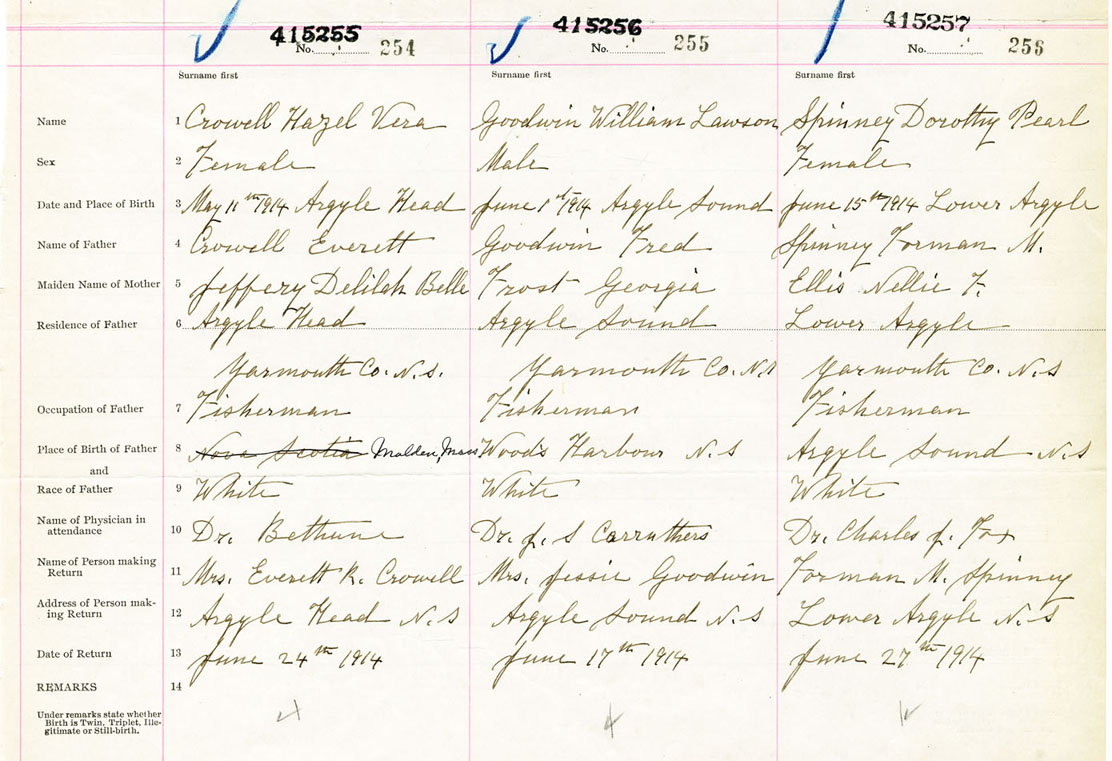 415255 415256 415257
No. 254 No. 255 No. 256
Surname first Surname first Surname first
Name 1 Crowell Hazel Vera Goodwin William Lawson Spinney Dorothy Pearl
Sex 2 Female Male Female
Date and Place of Birth 3 May 11th 1914 Argyle Head June 1st 1914 Argyle Sound June 15th 1914 Lower Argyle
Name of Father 4 Crowell Everett Goodwin Fred Spinney Forman M.
Maiden Name of Mother 5 Jeffery Delilah Belle Frost Georgia Ellis Nellie F.
Residence of Father 6 Argyle Head Argyle Sound Lower Argyle
Yarmouth Co. N.S. Yarmouth Co. N.S Yarmouth Co. N.S
Occupation of Father 7 Fisherman Fisherman Fisherman
Place of Birth of Father 8 Nova Scotia Malden, Mass Woods Harbour N.S Argyle Sound N.S
and
Race of Father 9 White White White
Name of Physician in
attendance 10 Dr. Bethune Dr. J. S Carruthers Dr. Charles J. Fox
Name of Person making
Return 11 Mrs. Everett K. Crowell Mrs. Jessie Goodwin Forman M. Spinney
Address of Person mak-
ing Return 12 Argyle Head N.S Argyle Sound N.S Lower Argyle N.S
Date of Return 13 June 24th 1914 June 17th 1914 June 27th 1914
REMARKS 14
Under remarks state whether
Birth is Twin, Triplet, Ille-
gitimate or Still-birth.